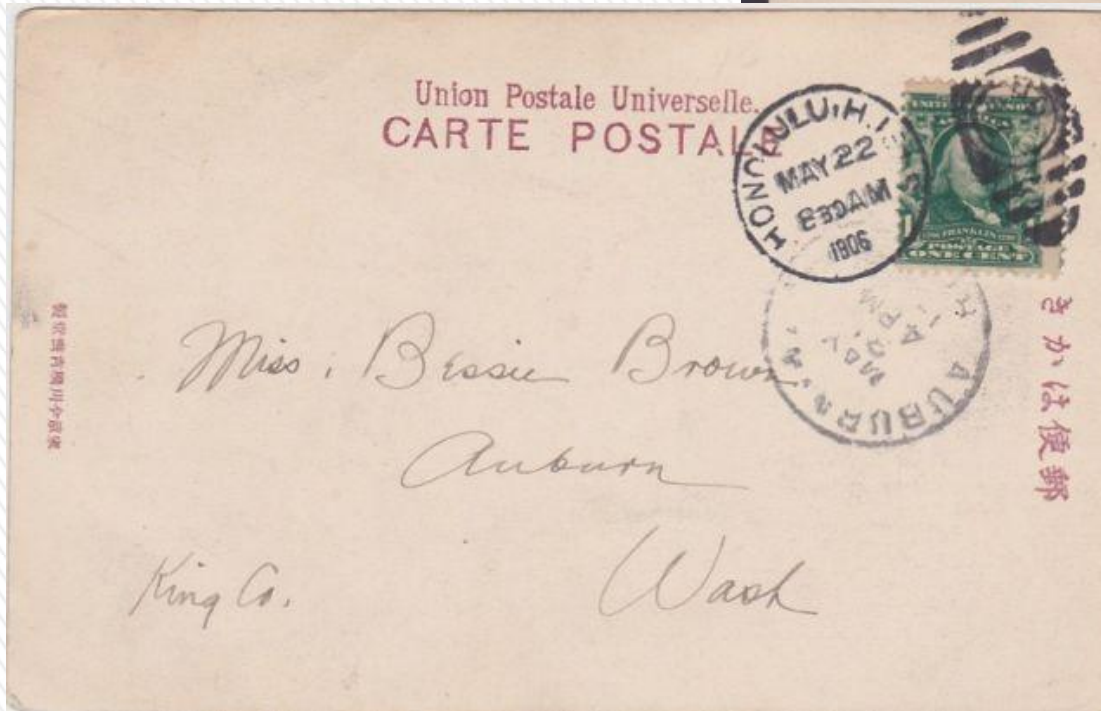 Union Postale Universelle.
CARTE POSTALE
HONOLULU, H.I.
MAY 22
8 30 AM
1906
FRANKLIN
POSTAGE
ONE CENT
きかは便郵
Miss. Bessie Brown
Auburn
King Co.
Wash
AUBURN,
MAY
4 PM